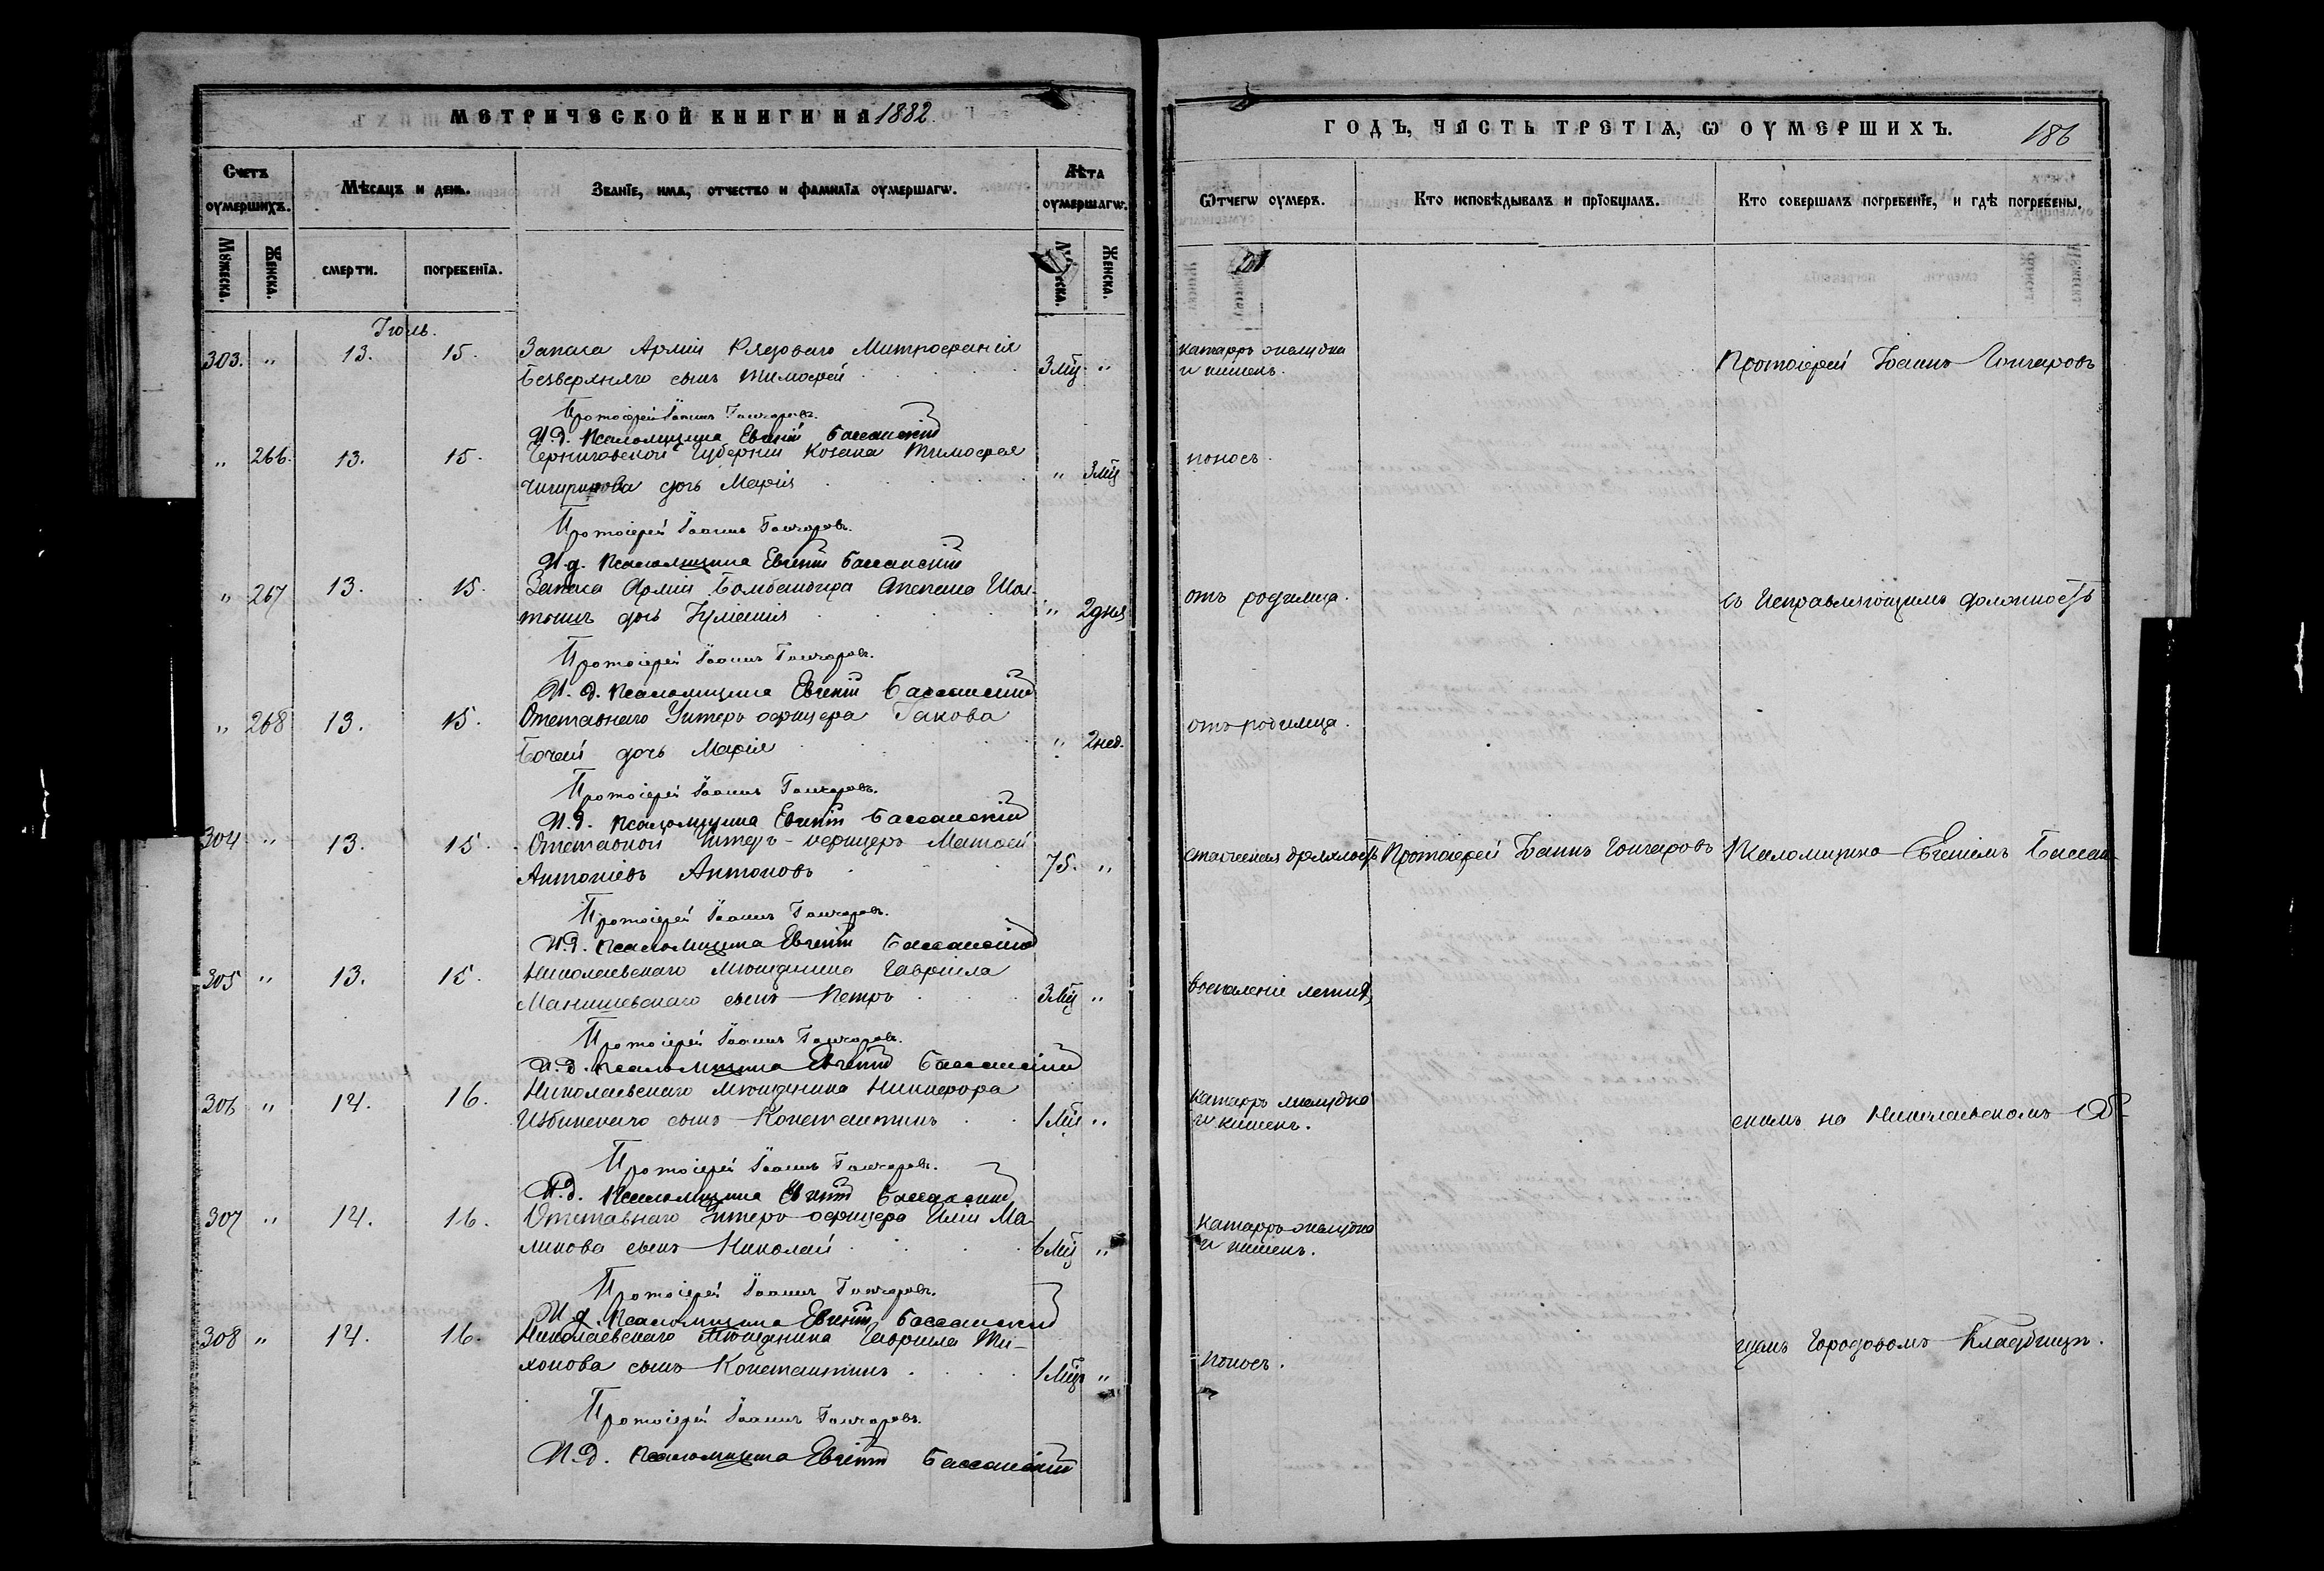 МЕТРИЧЕСКОЙ КНИГИ НА 1882
Счетъ оумершихъ.
Мѣсяцъ и день.
Званїе, имя, отчество и фамилїа оумершагѡ.
Лѣта оумершагѡ.
Мꙋжеска.
Женска.
смерти.
погребенїа.
Женска.
Іюль.
303. " 13. 15. Запаса Арміи Рядоваго Митрофанія
Безверхняго сынъ Тимофей 3 мц. "
Протоіерей Іоаннъ Гончаровъ.
И.д. Псаломщика Евгеній Бассанскій
" 266. 13. 15. Черниговской Губерніи Козака Тимофея
дочь Марія " 3 мц
Протоіерей Іоаннъ Гончаровъ.
И.д. Псаломщика Евгеній Бассанскій
" 267 13. 15. Запаса Арміи Бомбандира Степана Шол-
дочь Іуліанія " 2 дня
Протоіерей Іоаннъ Гончаровъ.
И.д. Псаломщика Евгеній Бассанскій
" 268 13. 15. Отставнаго Унтеръ офицера Іакова
дочь Марія " 2 нед.
Протоіерей Іоаннъ Гончаровъ.
И.д. Псаломщика Евгеній Бассанскій
304 " 13. 15. Отставной Унтеръ-офицеръ Матѳей
Антоніевъ Антоновъ 75. "
Протоіерей Іоаннъ Гончаровъ.
И.д. Псаломщика Евгеній Бассанскій
305 " 13. 15. Николаевскаго Мѣщанина Гавріила
Манишевскаго сынъ Петръ 3 мц "
Протоіерей Іоаннъ Гончаровъ.
И.д. Псаломщика Евгеній Бассанскій
306 " 14. 16. Николаевскаго Мѣщанина Никифора
сынъ Константинъ 1 мц "
Протоіерей Іоаннъ Гончаровъ.
И.д. Псаломщика Евгеній Бассанскій
307 " 14. 16. Отставнаго Унтеръ-офицера Иліи Ма-
ликова сынъ Николай 6 мц "
Протоіерей Іоаннъ Гончаровъ.
И.д. Псаломщика Евгеній Бассанскій
308 " 14. 16. Николаевскаго Мѣщанина Гавріила Ти-
хонова сынъ Константинъ 1 мцъ "
Протоіерей Іоаннъ Гончаровъ.
И.д. Псаломщика Евгеній Бассанскій
ГОДЪ, ЧАСТЬ ТРЕТІѦ, Ѡ ОУМЕРШИХЪ.
186
Ѿчегѡ оумеръ.
Кто исповѣдывалъ и прїобщалъ.
Кто совершалъ погребенїе, и гдѣ погребены.
катарръ желудка
и кишекъ.
Протоіерей Іоаннъ Гончаровъ
поносъ.
отъ родимца.
съ Исправляющимъ должность
отъ родимца.
старческая дряхлость Протоіерей Іоаннъ Гончаровъ Псаломщика Евгеніемъ Бассан-
воспаленіе легкихъ
катарръ желудка
и кишекъ.
скимъ на Николаевскомъ Об-
катарръ желудка
и кишекъ.
щемъ Городовомъ Кладбищѣ.
поносъ.